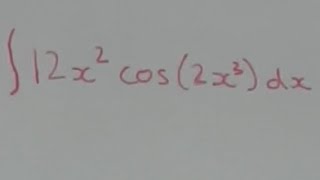 ∫12x² cos(2x³) dx